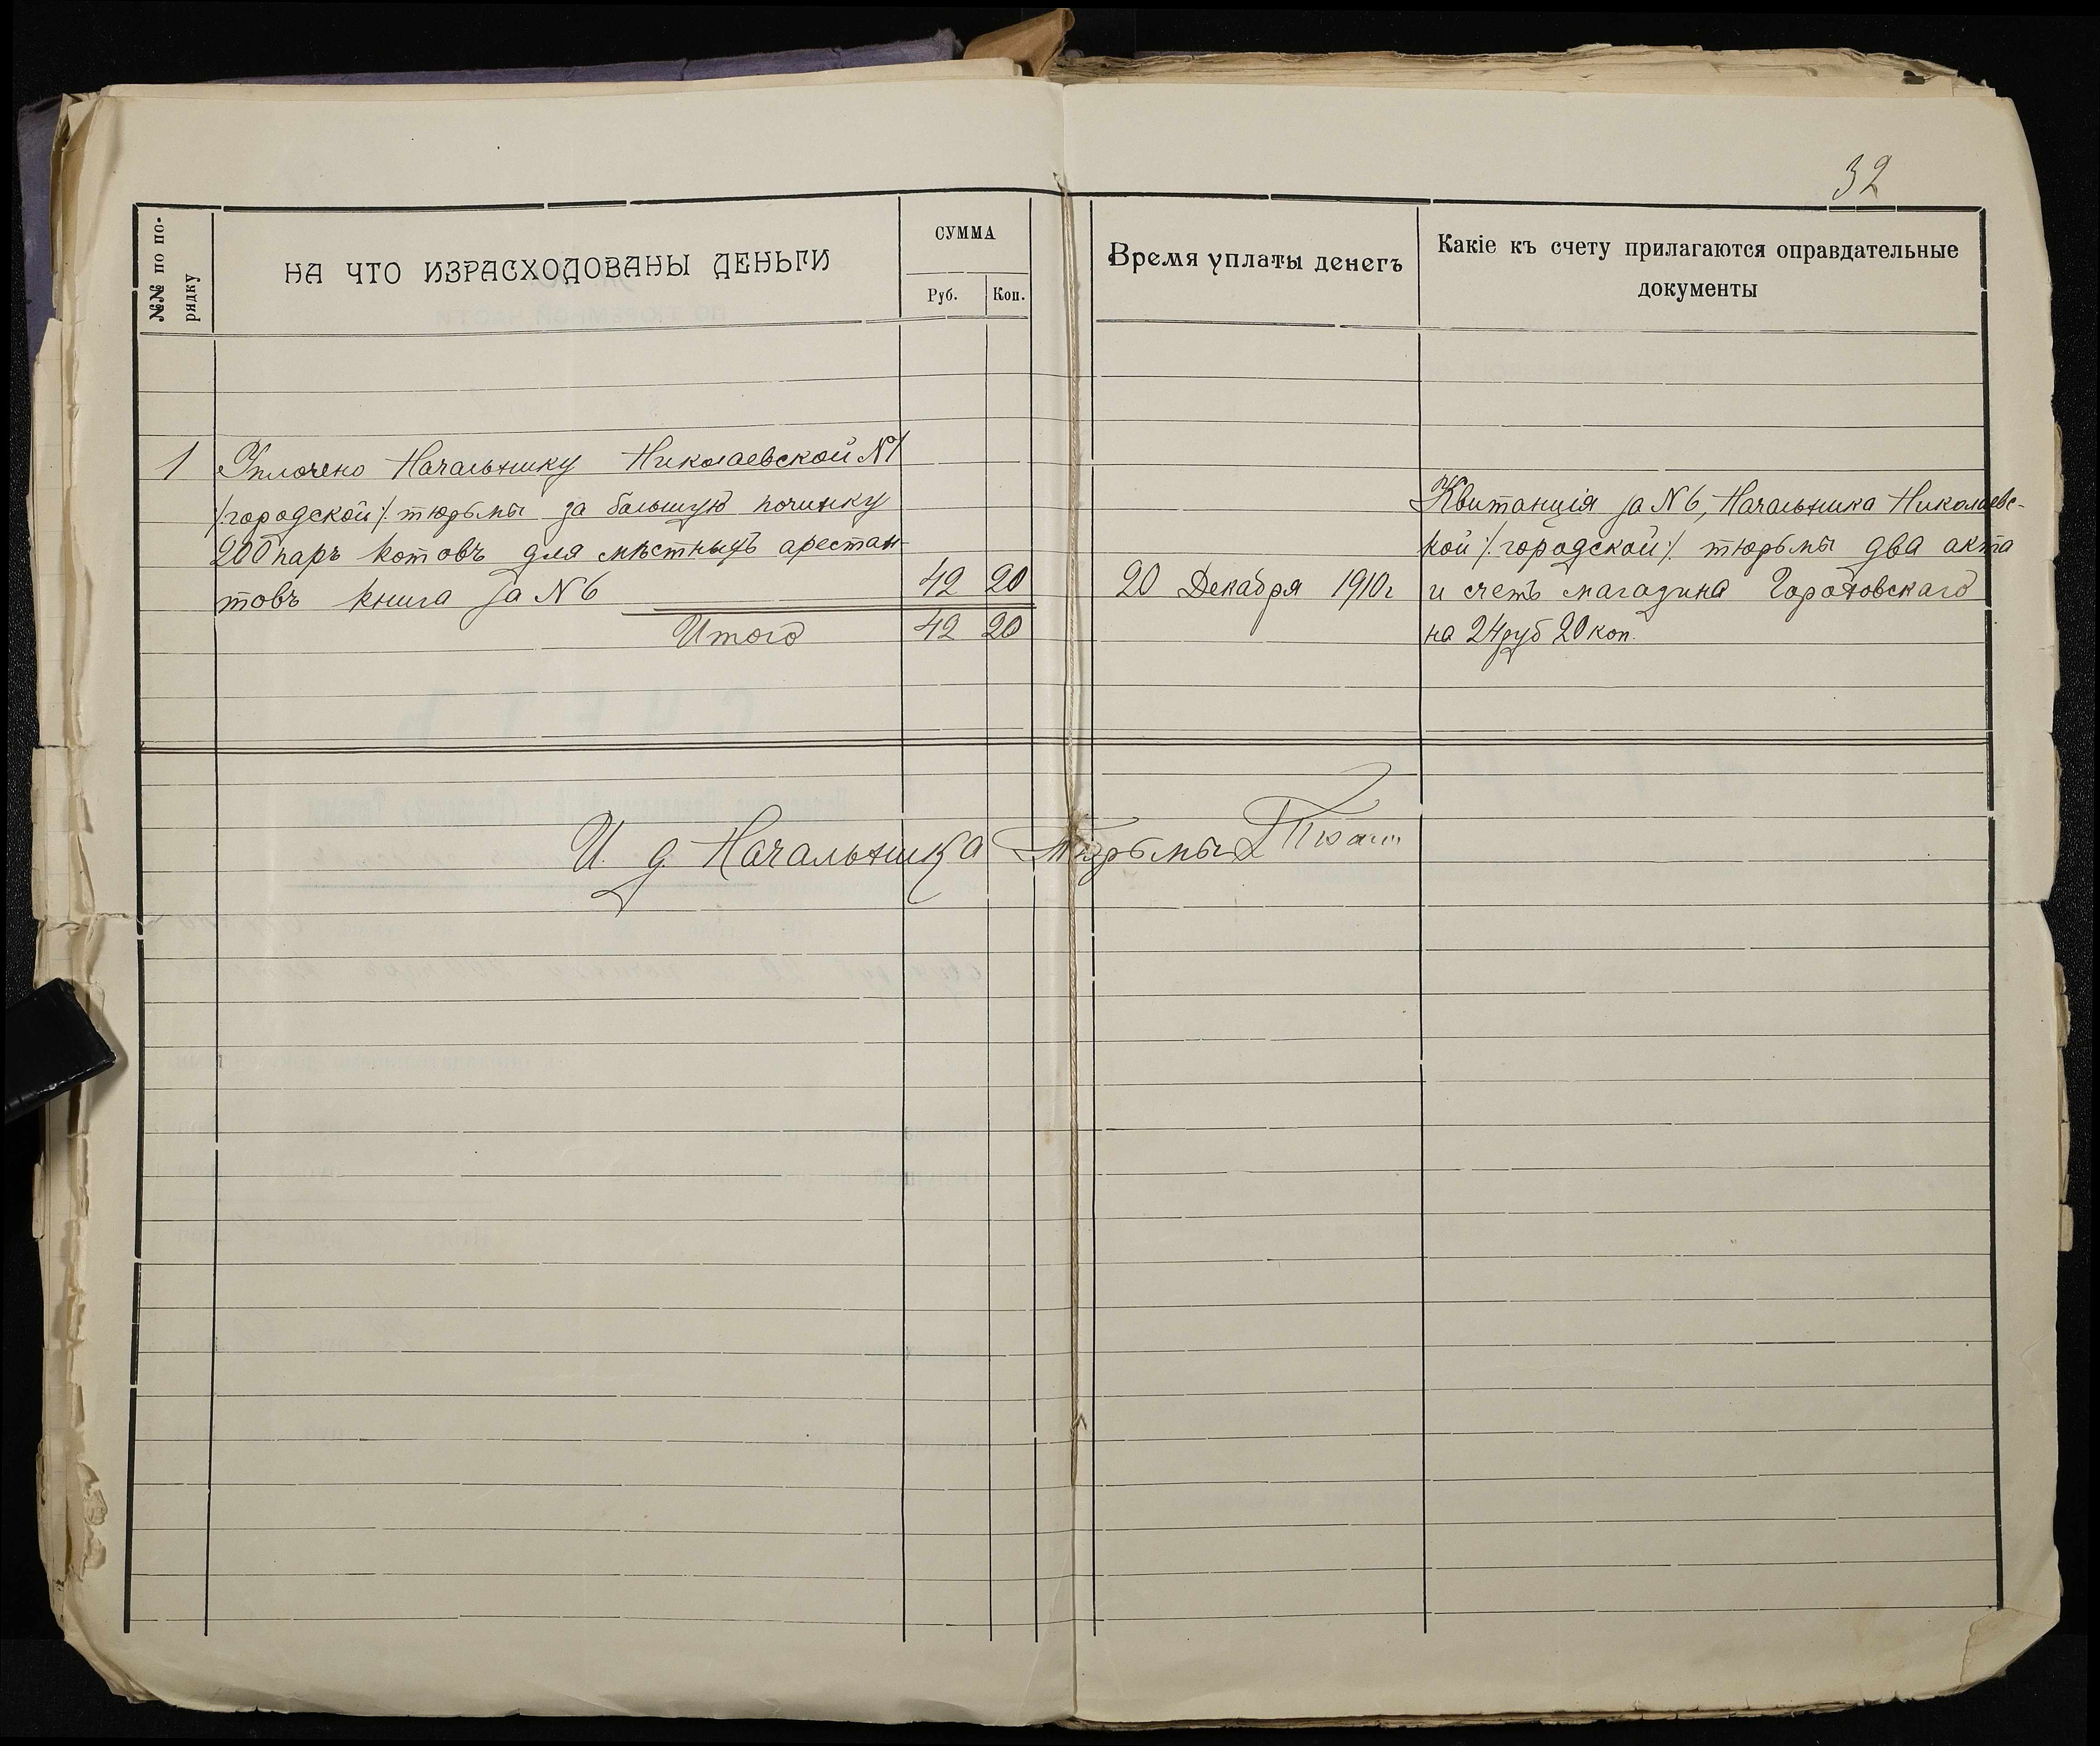 32
№№ по по-
рядку
НА ЧТО ИЗРАСХОДОВАНЫ ДЕНЬГИ
СУММА
Руб.
Коп.
Время уплаты денегъ
Какіе къ счету прилагаются оправдательные
документы
1 Уплочено Начальнику Николаевской №1
/городской/. тюрьмы за большую починку
200 паръ котовъ для мѣстныхъ арестан-
товъ книга за №6 42 20
Итого 42 20
20 Декабря 1910г
Квитанція за №6, Начальника Николаевс-
кой /.городской:/. тюрьмы два акта
и счетъ магазина
на 24руб 20коп.
И. д. Начальника Тюрьмы